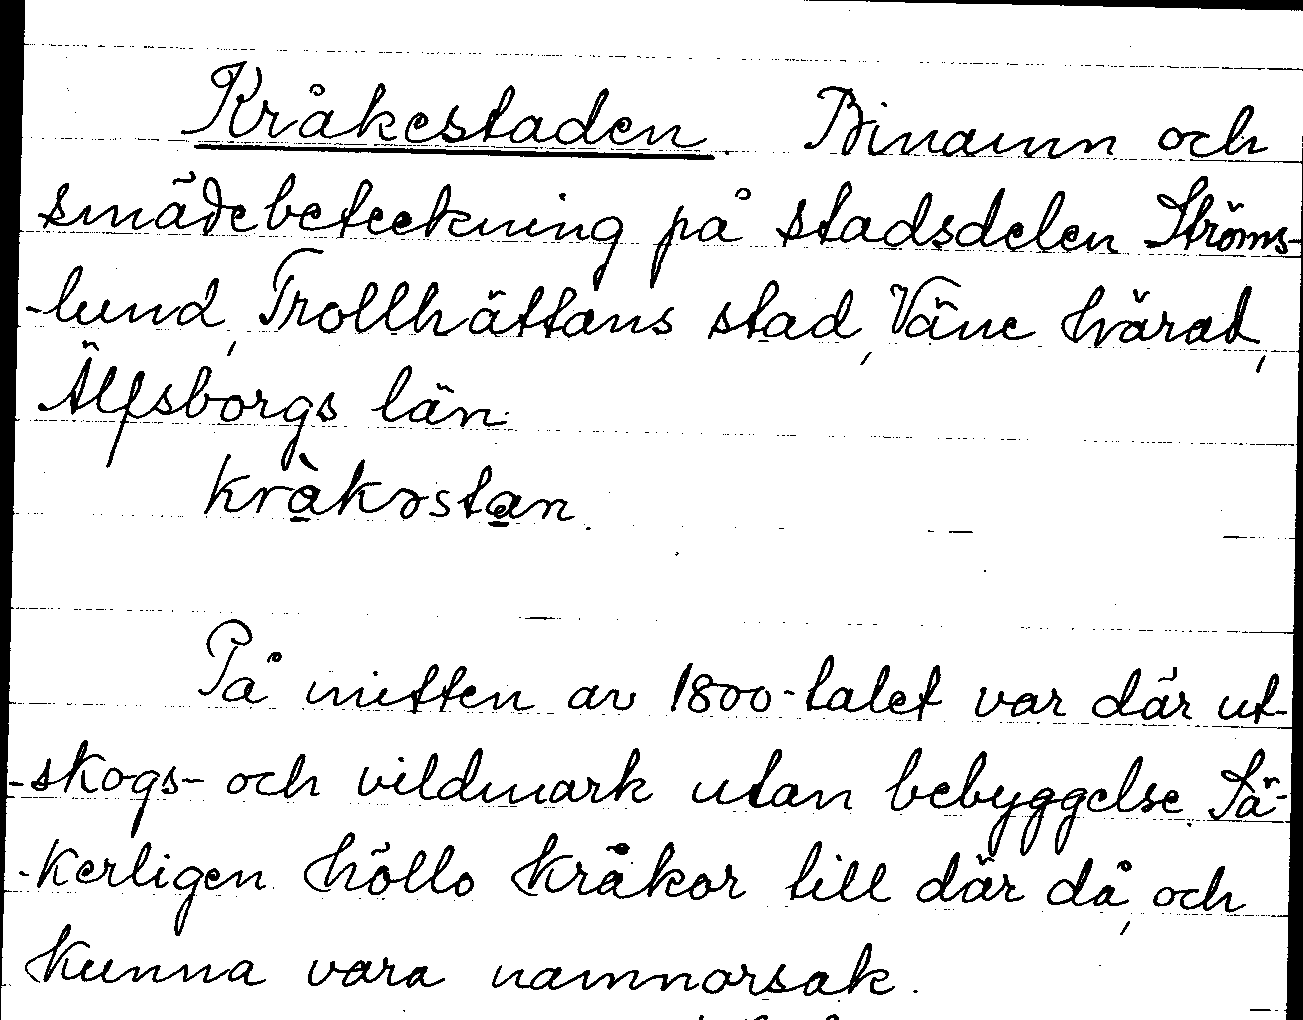 Kråkestaden. Binamn och
smädebeteckning på stadsdelen Ströms-
-lund, Trollhättans stad, Väne härad,
Älfsborgs län.
kràkəstan.
På mitten av 1800-talet var där ut-
-skogs- och vildmark utan bebyggelse. Sä-
-kerligen höllo kråkor till där då, och
kunna vara namnorsak.